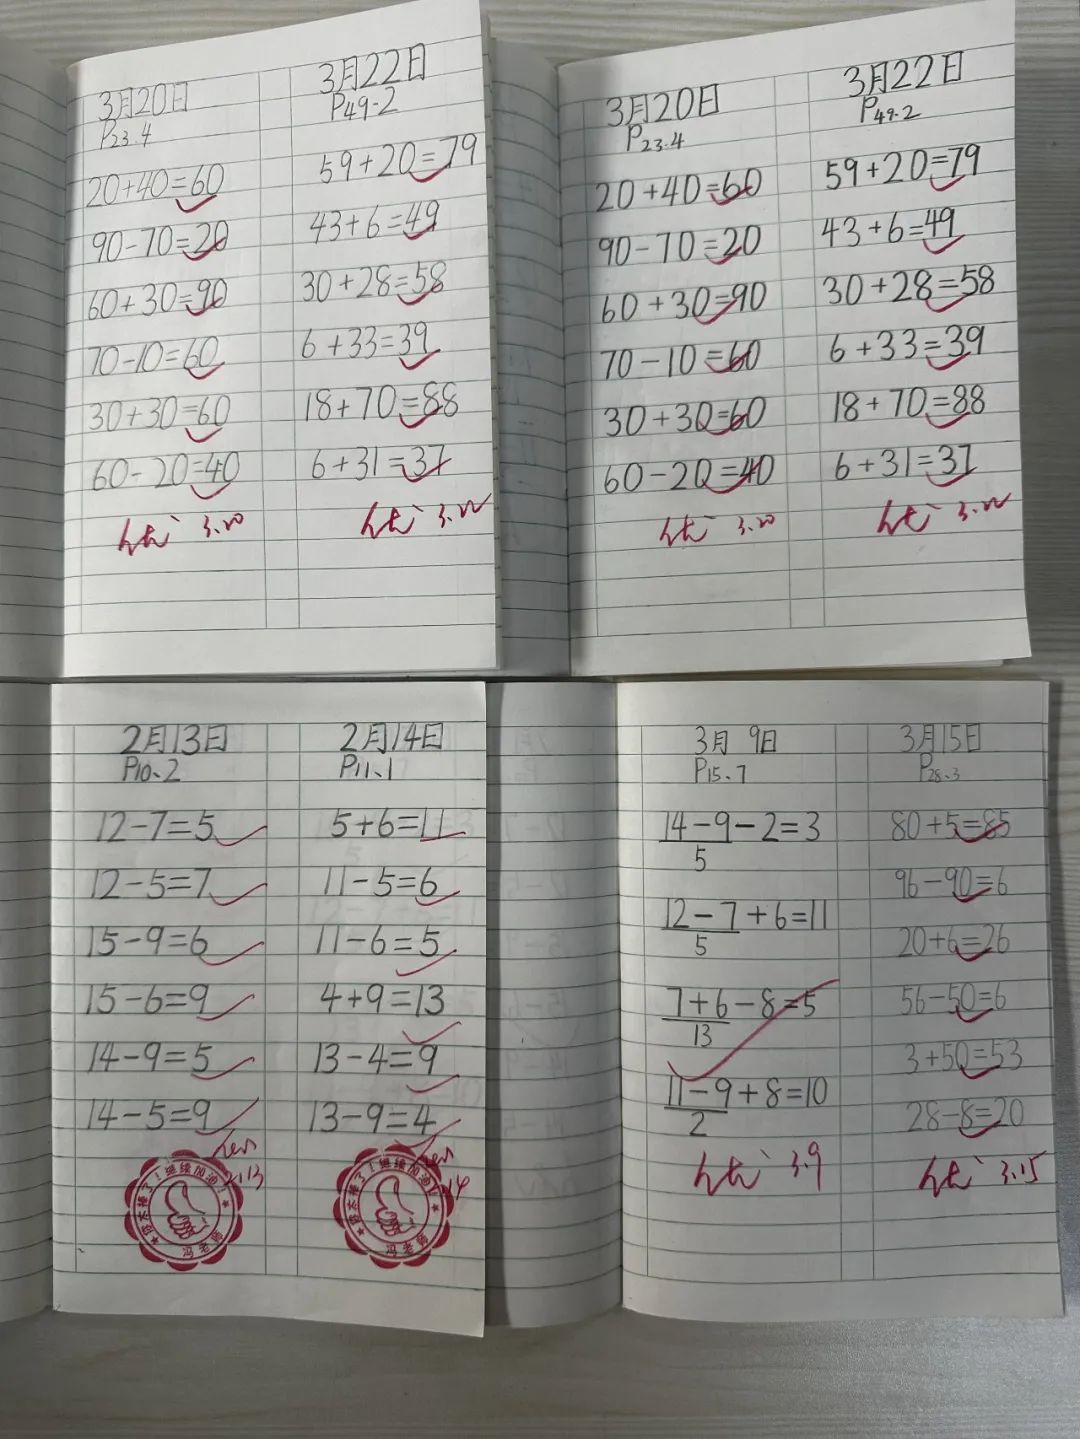 3月20日
P23.4
20+40=60
90-70=20
60+30=90
70-10=60
30+30=60
60-20=40
优 3.20
3月22日
P49-2
59+20=79
43+6=49
30+28=58
6+33=39
18+70=88
6+31=37
优 3.22
3月20日
P23.4
20+40=60
90-70=20
60+30=90
70-10=60
30+30=60
60-20=40
优 3.20
3月22日
P49.2
59+20=79
43+6=49
30+28=58
6+33=39
18+70=88
6+31=37
优 3.22
2月13日
P10、2
12-7=5
12-5=7
15-9=6
15-6=9
14-9=5
14-5=9
2.13
你太棒了!继续加油!
冯老师
2月14日
P11、1
5+6=11
11-5=6
11-6=5
4+9=13
13-4=9
13-9=4
14
你太棒了!继续加油!
冯老师
3月9日
P15、7
14-9-2=3
5
12-7+6=11
5
7+6-8=5
13
11-9+8=10
2
优 3.9
3月15日
P28.3
80+5=85
96-90=6
20+6=26
56-50=6
3+50=53
28-8=20
优 3.15